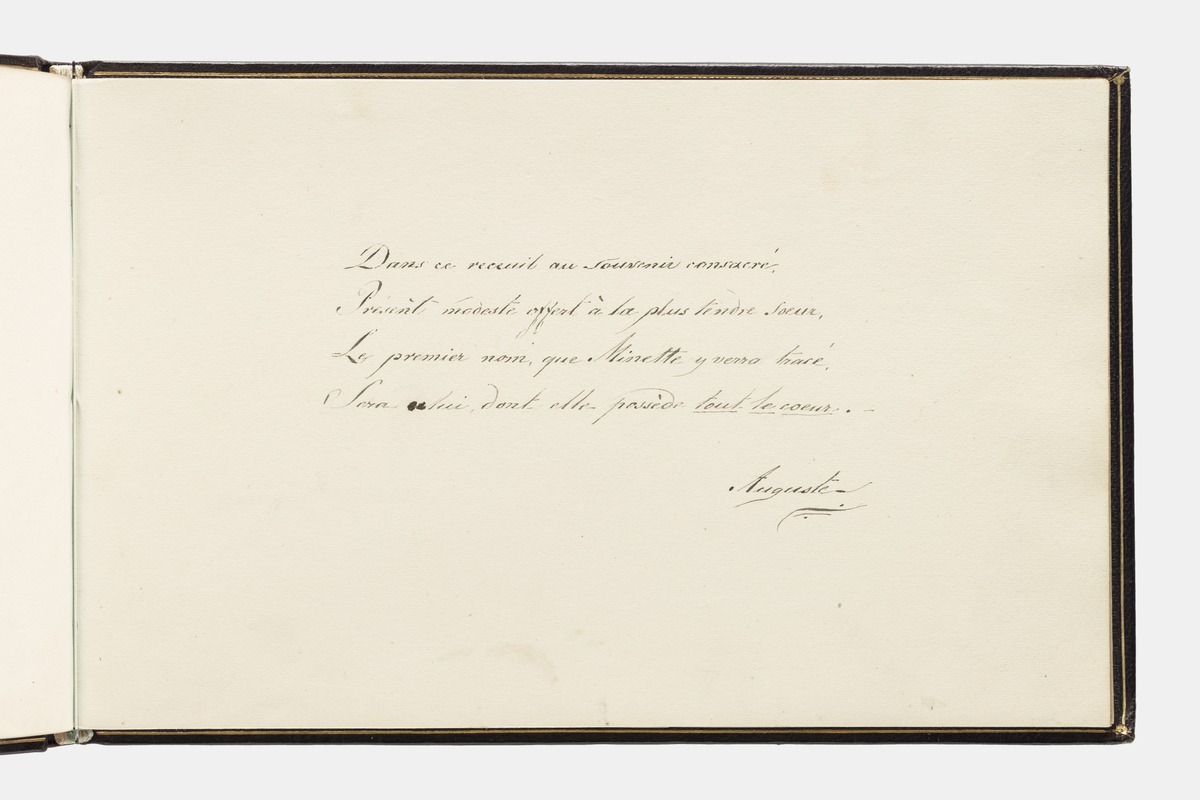 Dans ce receuil au Souvenir consacré,
Présent modeste offert à la plus tendre Soeur,
Le premier nom, que Minette y verra tracé,
Sera celui, dont elle possède tout le coeur. -
Auguste